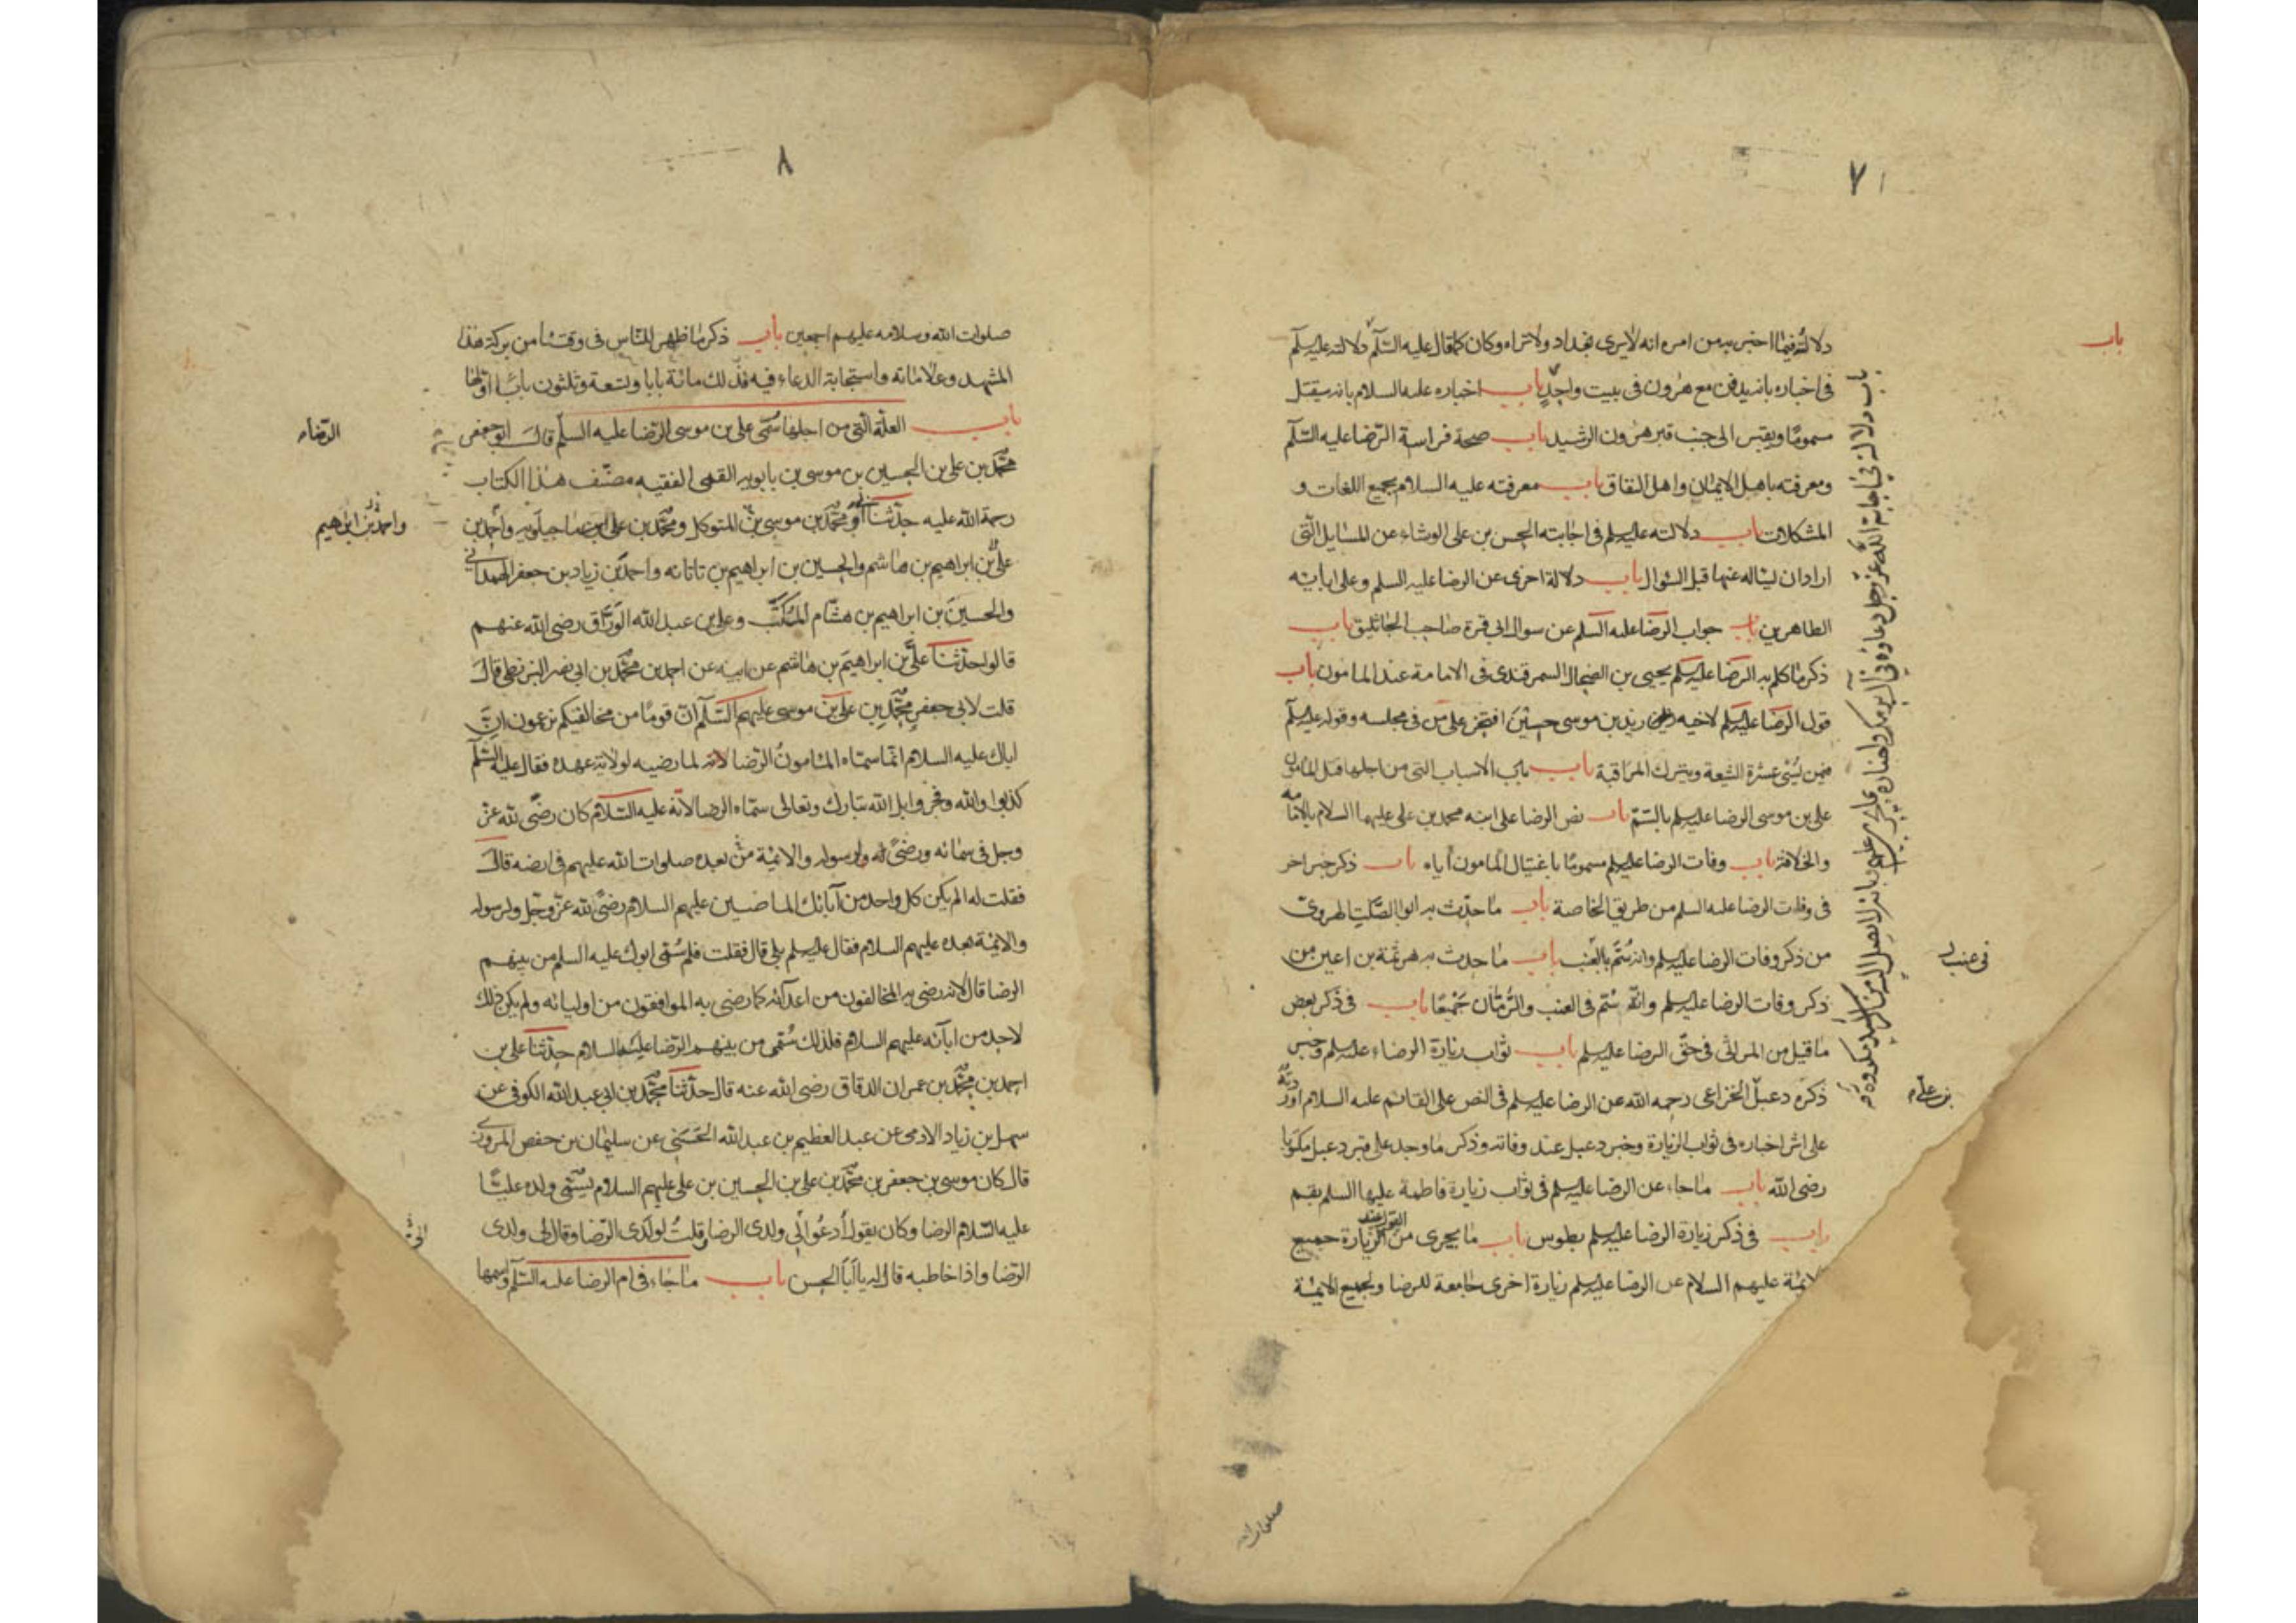 ٧١
باب
دلالته فيما اخبر به من امره انه لا يرى بغداد ولا تراه وكان كما قال عليه السلام دلالته عليه السلم
فى اخباره بانه يدفن مع هرون فى بيت واحد باب اخباره عليه السلام بانه سيقتل
مسموما ويقبر الى جنب قبر هرون الرشيد باب صحة فراسة الرضا عليه السلم
ومعرفته باهل الايمان واهل النفاق باب معرفته عليه السلام بجميع اللغات و
المشكلات باب دلالته عليه السلم فى اجابته الحسن بن على الوشاء عن المسايل التى
اراد ان يساله عنها قبل السؤال باب دلالة اخرى عن الرضا عليه السلم وعلى ابائه
الطاهرين باب جواب الرضا عليه السلم عن سوال ابى قرة صاحب الجاثليق باب
ذكر ما كلم به الرضا عليه السلم يحيى بن الضحاك السمرقندى فى الامامة عند المامون باب
قول الرضا عليه السلم لاخيه زيد بن موسى حين افتخر على من فى مجلسه وقوله عليه السلم
فيمن يسئ عشرة الشيعة ويترك المراقبة باب باب الاسباب التى من اجلها قتل المامون
على بن موسى الرضا عليه السلم بالسم باب نص الرضا على ابنه محمد بن على عليهما السلام بالامامة
والخلافة باب وفات الرضا عليه السلم مسموما باغتيال المامون اياه باب ذكر خبر اخر
فى وفات الرضا عليه السلم من طريق الخاصة باب ما حدث به ابوا الصلت الهروى
من ذكر وفات الرضا عليه السلم وانه سم بالعنب باب ما حدث به هرثمة بن اعين من
ذكر وفات الرضا عليه السلم وانه سم فى العنب والرمان جميعا باب فى ذكر بعض
ما قيل من المراثى فى حق الرضا عليه السلم باب ثواب زيارة الرضاء عليه السلم وخبر
ذكره دعبل الخزاعى رحمه الله عن الرضا عليه السلم فى النص على القائم عليه السلام اوردته
على اثر اخباره فى ثواب الزيارة وخبر دعبل عند وفاته وذكر ما وجد على قبر دعبل مكتوبا
رضى الله باب ما جاء عن الرضا عليه السلم فى ثواب زيارة فاطمة عليها السلم بقم
باب فى ذكر زيارة الرضا عليه السلم بطوس باب ما يجرى من القول عند الزيارة جميع
الائمة عليهم السلام عن الرضا عليه السلم زيارة اخرى جامعة للرضا ولجميع الائمة
فى عنب
بن على
صلوات الله
٨
صلوات الله وسلامه عليهم اجمعين باب ذكر ما ظهر للناس فى وقتنا من بركة هذا
المشهد وعلاماته واستجابة الدعاء فيه فذلك مائة بابا وتسعة وثلثون بابا اولها
باب العلة التى من اجلها سمى على بن موسى الرضا عليه السلم قال ابو جعفر
محمد بن على بن الحسين بن موسى بن بابويه القمى الفقيه مصنف هذا الكتاب
رحمة الله عليه حدثنا ابى ومحمد بن موسى بن المتوكل ومحمد بن على ماجيلويه واحمد بن
على بن ابراهيم بن هاشم والحسين بن ابراهيم بن تاتانه واحمد بن زياد بن جعفر الهمدانى
والحسين بن ابراهيم بن هشام المكتب وعلى بن عبد الله الوراق رضى الله عنهم
قالوا حدثنا على بن ابراهيم بن هاشم عن ابيه عن احمد بن محمد بن ابى نصر البزنطى قال
قلت لابى جعفر محمد بن على بن موسى عليهم السلم ان قوما من مخالفيكم يزعمون ان
اباك عليه السلام انما سماه المامون الرضا لانه لما رضيه لولاية عهده فقال عليه السلم
كذبوا والله وفجروا بل الله تبارك وتعالى سماه الرضا لانه عليه السلام كان رضى لله عز
وجل فى سمائه ورضى له ولرسوله والائمة من بعده صلوات الله عليهم فى ارضه قال
فقلت له الم يكن كل واحد من آبائك الماضيين عليهم السلام رضى لله عز وجل ولرسوله
والائمة بعده عليهم السلام فقال عليه السلم بلى قال فقلت فلم سمى ابوك عليه السلم من بينهم
الرضا قال لانه رضى به المخالفون من اعدائه كما رضى به الموافقون من اوليائه ولم يكن ذلك
لاحد من ابآئه عليهم السلام فلذلك سمى من بينهم الرضا عليه السلام حدثنا على بن
احمد بن محمد بن عمران الدقاق رضى الله عنه قال حدثنا محمد بن ابى عبد الله الكوفى عن
سهل بن زياد الادمى عن عبد العظيم بن عبد الله الحسنى عن سليمان بن حفص المروزى
قال كان موسى بن جعفر بن محمد بن على بن الحسين بن على عليهم السلام يسمى ولده عليا
عليه السلام الرضا وكان يقول ادعوا لى ولدى الرضا وقلت لولدى الرضا وقال لى ولدى
الرضا واذا خاطبه قال له يا ابا الحسن باب ما جاء فى ام الرضا عليه السلم واسمها
الرضاء
واحمد بن ابراهيم